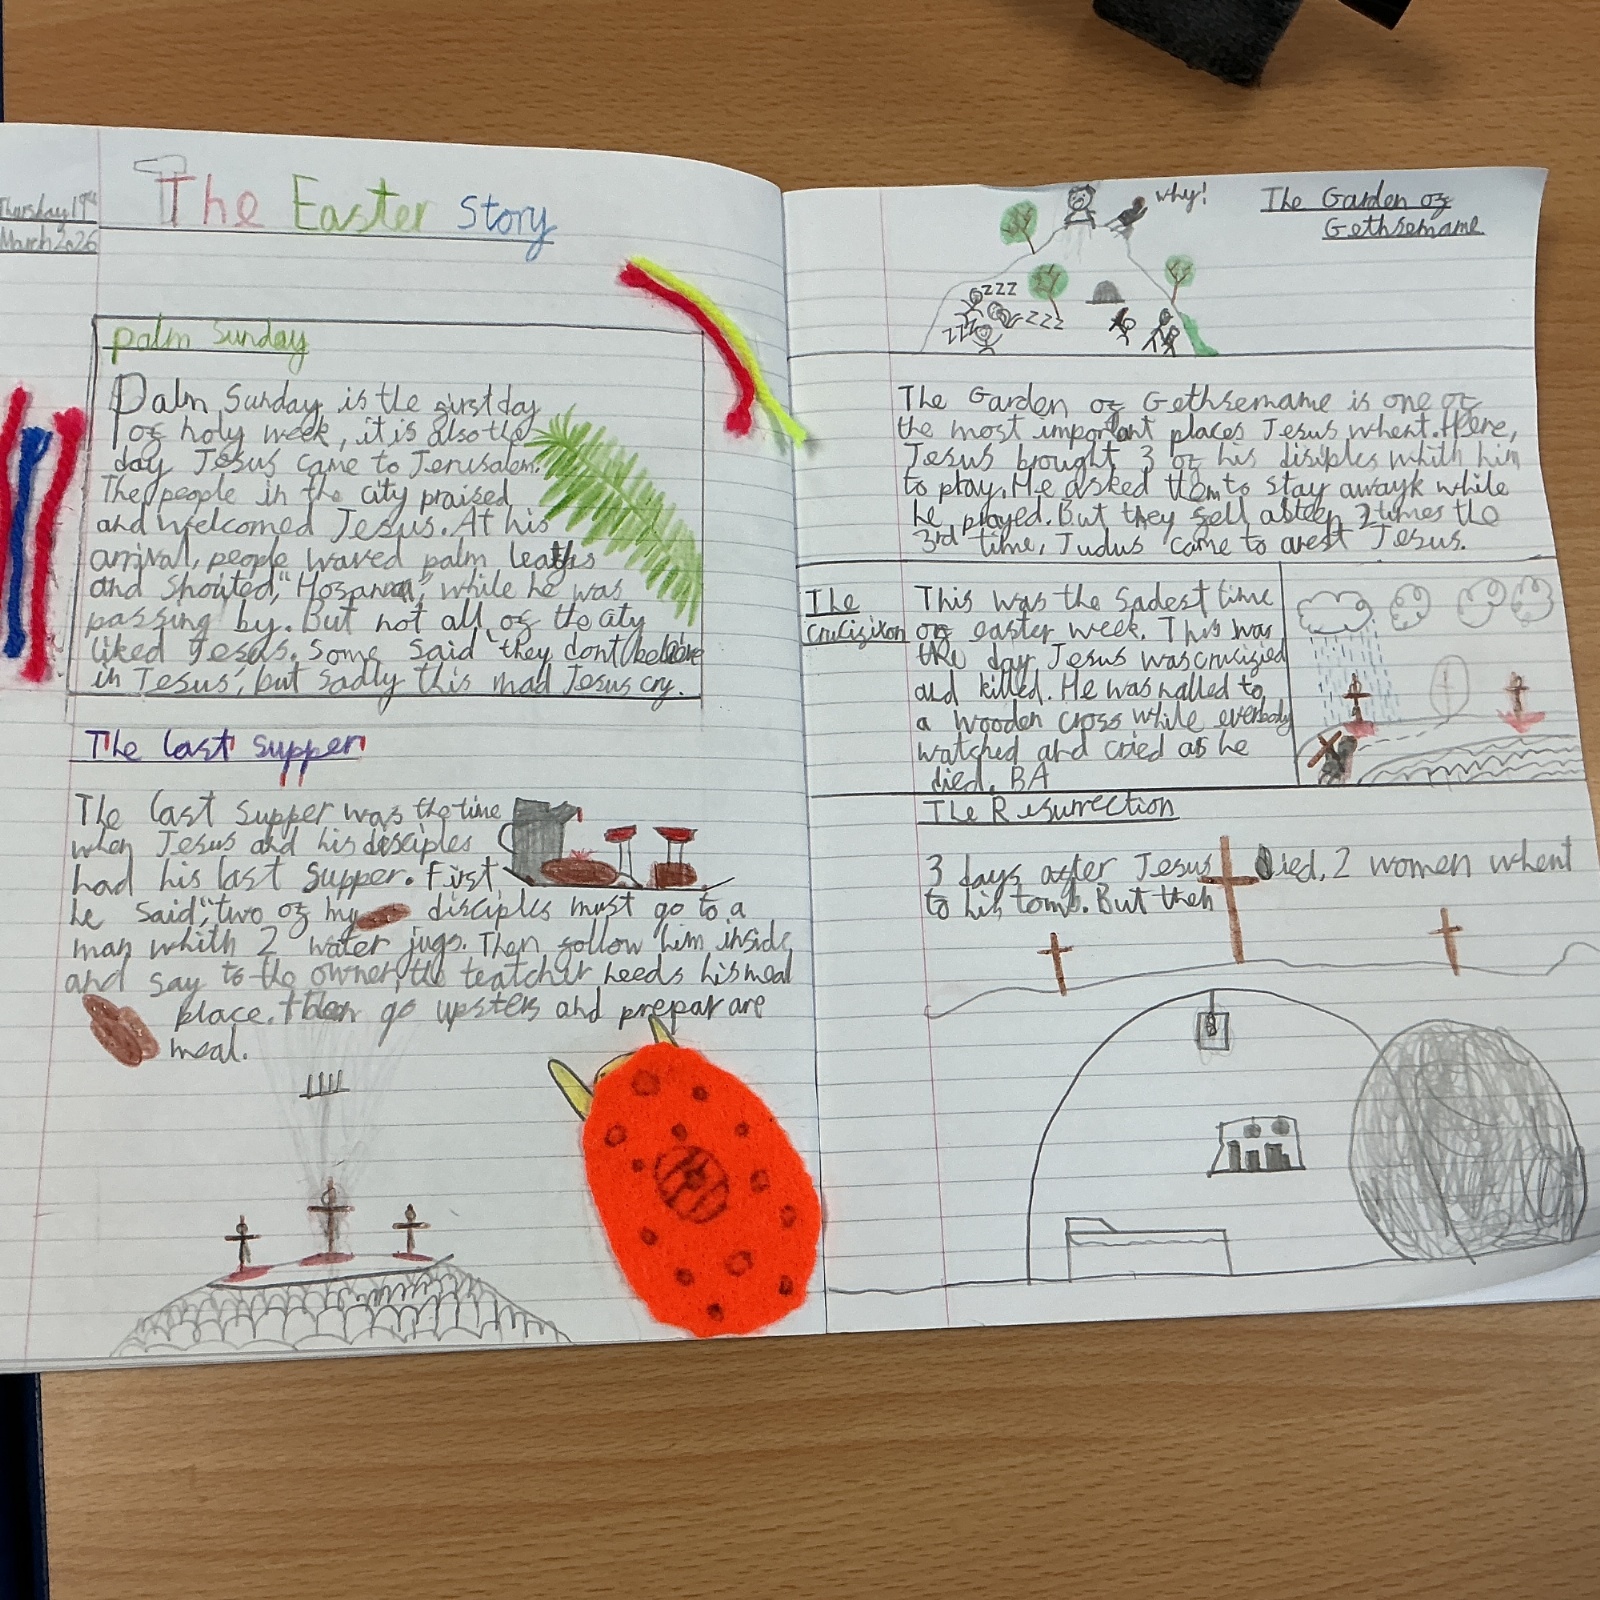 Thursday 19th
March 2026
The Easter Story
Palm Sunday
Palm Sunday is the first day
of holy week, it is also the
day Jesus came to Jerusalem.
The people in the city praised
and welcomed Jesus. At his
arrival, people waved palm leaths
and Shouted, "Hosanna", while he was
passing by. But not all of the city
liked Jesus. Some said "they dont beleive
in Jesus", but sadly this mad Jesus cry.
The last supper
The last supper was the time
when Jesus and his disciples
had his last supper. First
he said, "two of my disciples must go to a
man whith 2 water jugs. Then follow him inside
and say to the owner, the teatcher needs his meal
place. then go upsters and prepar are
meal.
why!
The Garden of
Gethsemame
zzz
zzz
zzz
The Garden of Gethsemame is one of
the most important places Jesus whent. Here,
Jesus brought 3 of his disiples whith him
to pray. He asked them to stay awayk while
he prayed. But they fell asleep 2 times the
3rd time, Judus came to arest Jesus.
The
crucifixon
This was the sadest time
on easter week. This was
the day Jesus was crucified
and killed. He was nalled to
a wooden cross while everbody
watched and cried as he
died. BA
The Resurrection
3 days after Jesus Died, 2 women whent
to his tomb. But then